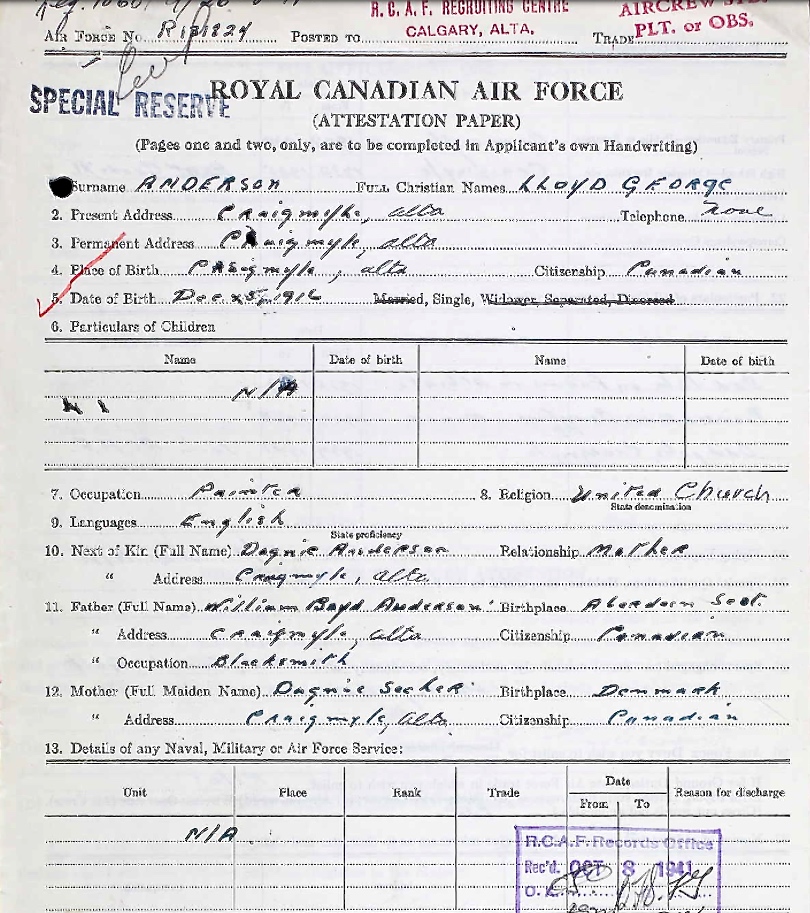 R.C.A.F. RECRUITING CENTRE
CALGARY, ALTA.
AIRCREW STD.
PLT. or OBS.
AIR FORCE NO. R121824 POSTED TO TRADE
SPECIAL RESERVE
ROYAL CANADIAN AIR FORCE
(ATTESTATION PAPER)
(Pages one and two, only, are to be completed in Applicant's own Handwriting)
Surname ANDERSON FULL CHRISTIAN NAMES LLOYD GEORGE
2. Present Address Craigmyle, Alta Telephone None
3. Permanent Address Craigmyle, Alta
4. Place of Birth Craigmyle, Alta Citizenship Canadian
5. Date of Birth Dec 25, 1916 Married, Single, Widower, Separated, Divorced
6. Particulars of Children
Name Date of birth Name Date of birth
N/A
7. Occupation Painter 8. Religion United Church
State denomination
9. Languages English
State proficiency
10. Next of Kin (Full Name) Dagnie Anderson Relationship Mother
" Address Craigmyle, Alta.
11. Father (Full Name) William Boyd Anderson Birthplace Aberdeen Scot.
" Address Craigmyle, Alta Citizenship Canadian
" Occupation Blacksmith
12. Mother (Full Maiden Name) Dagnie Secher Birthplace Denmark
" Address Craigmyle, Alta. Citizenship Canadian
13. Details of any Naval, Military or Air Force Service:
Unit Place Rank Trade Date From To Reason for discharge
N/A
R.C.A.F. Records Office
Rec'd. OCT 8 1941